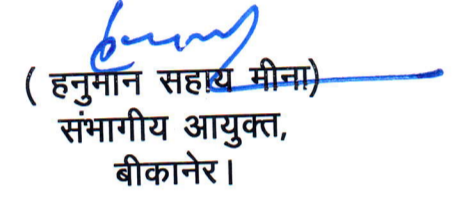 ( हनुमान सहाय मीना)
संभागीय आयुक्त,
बीकानेर।